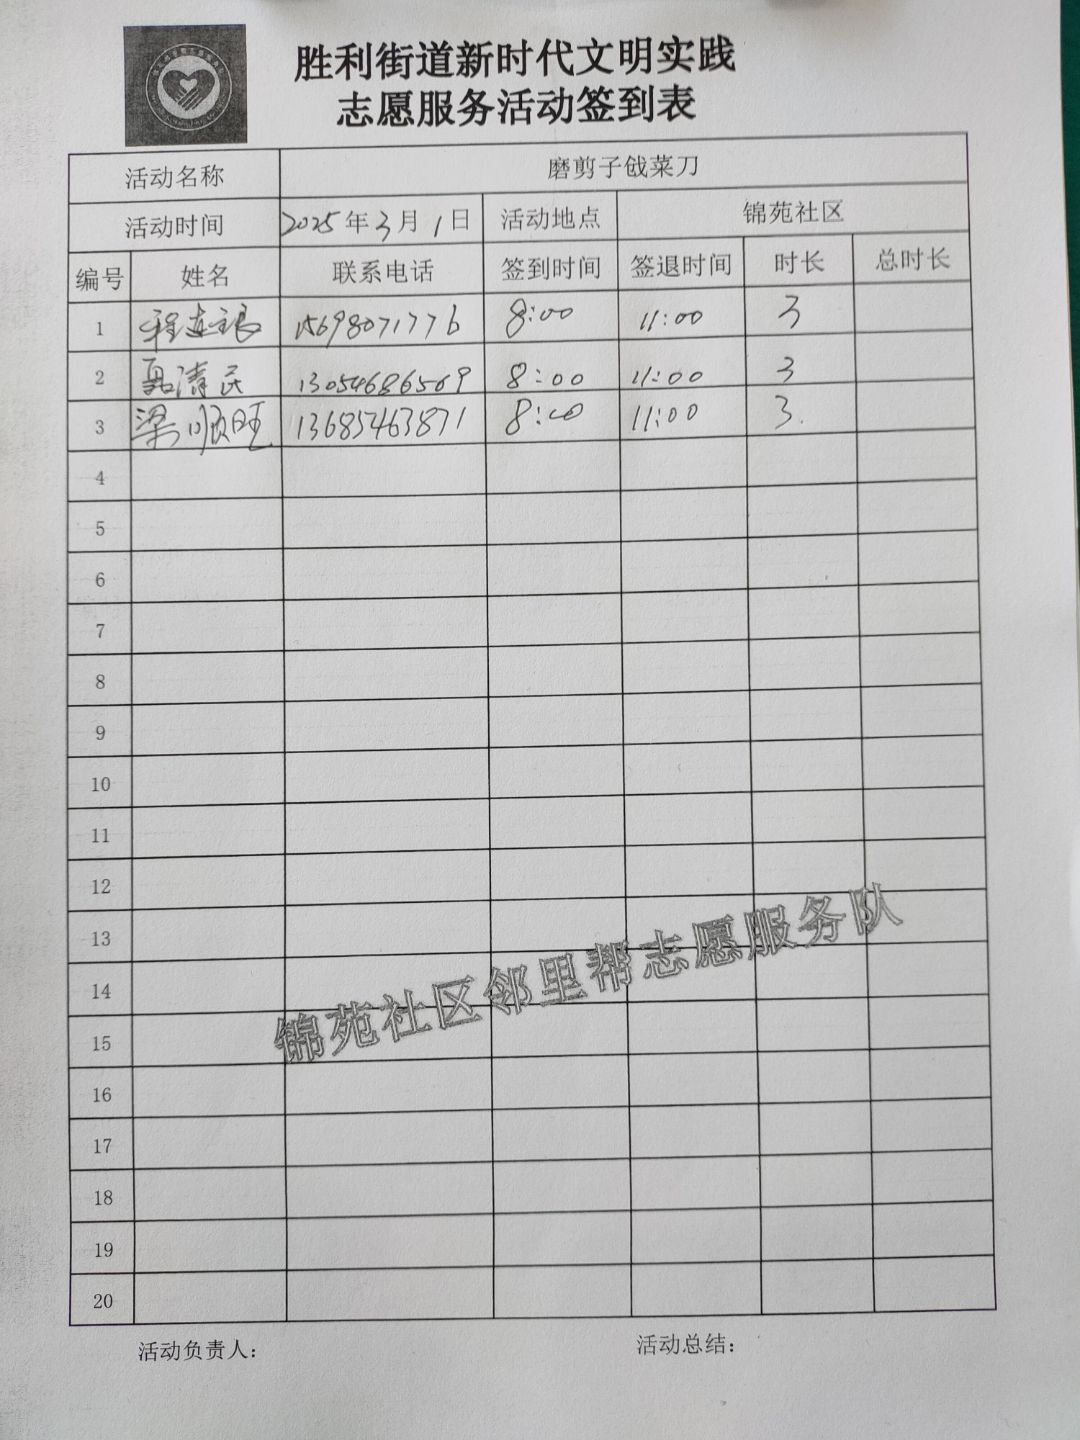 胜利街道新时代文明实践
志愿服务活动签到表
活动名称 磨剪子戗菜刀
活动时间 2025年3月1日 活动地点 锦苑社区
编号 姓名 联系电话 签到时间 签退时间 时长 总时长
1 程连良 15698071776 8:00 11:00 3
2 清民 13054686569 8:00 11:00 3
3 梁顺旺 13685463871 8:00 11:00 3.
4
5
6
7
8
9
10
11
12
13
14
15
16
17
18
19
20
锦苑社区邻里帮志愿服务队
活动负责人： 活动总结：